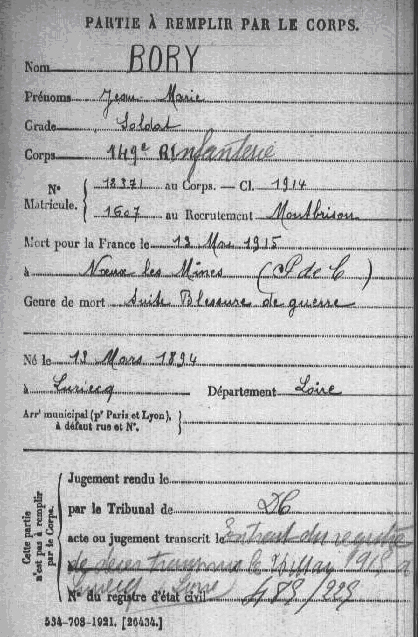 PARTIE À REMPLIR PAR LE CORPS.
Nom BORY
Prénoms Jean Marie
Grade Soldat
Corps 149e RInfanterie
N° Matricule. { 18371 au Corps. — Cl. 1914
1607 au Recrutement Montbrison
Mort pour la France le 13 Mai 1915
à Nœux les Mines (P de C)
Genre de mort Suite Blessure de guerre
Né le 13 Mars 1894
à Luriecq Département Loire
Arr¹ municipal (pʳ Paris et Lyon), à défaut rue et N°. }
Cette partie n'est pas à remplir par le Corps.
Jugement rendu le
par le Tribunal de DC
acte ou jugement transcrit le Extrait du registre
de transmis le Mai 1918 à
Loire
N° du registre d'état civil 489/229
534-708-1921. [26434.]